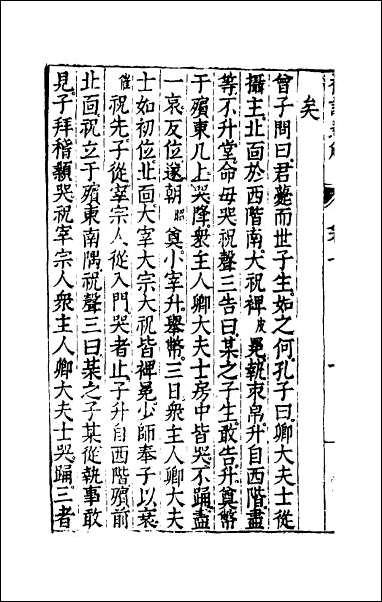 矣
曾子問曰君薨而世子生如之何孔子曰卿大夫士從
攝主北面於西階南大祝裨皮冕執束帛升自西階盡
等不升堂命毋哭祝聲三告曰某之子生敢告升奠幣
于殯東几上哭降衆主人卿大夫士房中皆哭不踊盡
一哀反位遂朝昭奠小宰升舉幣三日衆主人卿大夫
士如初位北面大宰大宗大祝皆裨冕少師奉子以衰
催祝先子從宰宗人從入門哭者止子升自西階殯前
北面祝立于殯東南隅祝聲三曰某之子某從執事敢
見子拜稽顙哭祝宰宗人衆主人卿大夫士哭踊三者